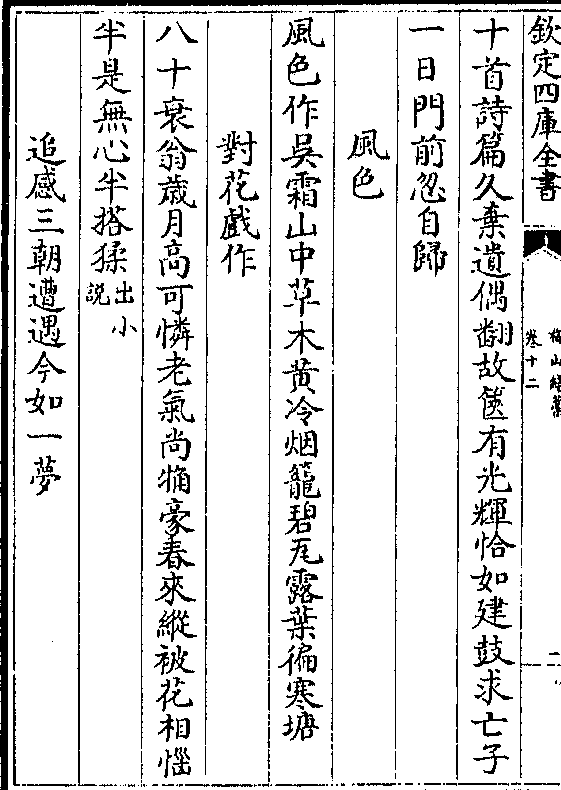 欽定四庫全書
梅山續藁
卷十二
十首詩篇久棄遺偶翻故篋有光輝恰如建鼓求亡子
一日門前忽自歸
風色
風色作吳霜山中草木黄冷烟籠碧瓦露葉徧寒塘
對花戲作
八十衰翁歲月高可憐老氣尚觕豪春來縱被花相惱
半是無心半搭猱出小說
追感三朝遭遇今如一夢